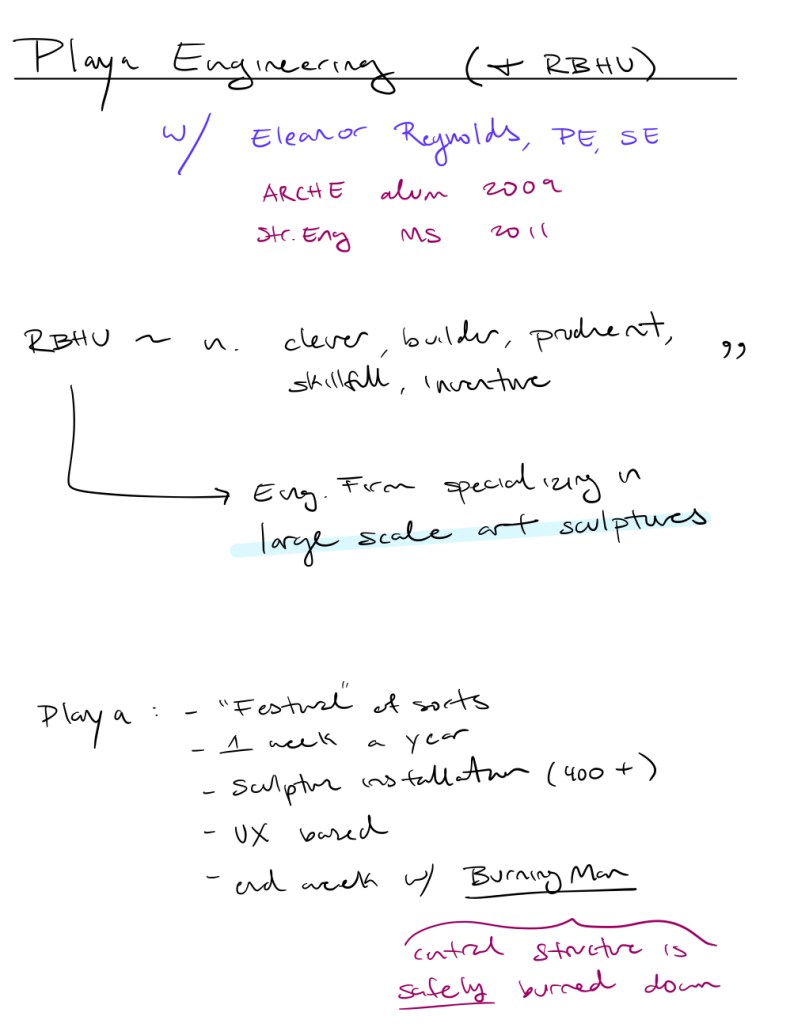 Playa Engineering (+ RBHU)
w/ Eleanor Reynolds, PE, SE
ARCHE alum 2009
Str. Eng MS 2011
RBHU ~ n. clever, builder, prudnent, ”
skillfull, inventive
Eng. Firm specializing in
large scale art sculptures
Playa : - "Festival" of sorts
- 1 week a year
- sculptur installation (400 +)
- UX based
- end week w/ Burning Man
central structure is
safely burned down